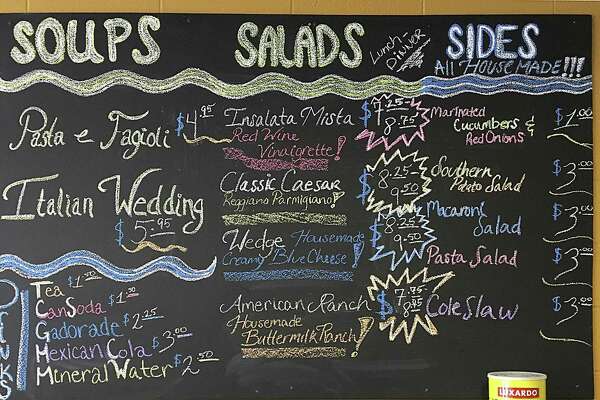 SOUPS
Pasta e Fagioli $4.95
Italian Wedding
$5.95
Drinks
Tea
Can Soda $1.50
Gadorade $2.25
Mexican Cola $3.00
Mineral Water $2.50
SALADS
Lunch-
DINNER
Insalata Mista $7.25-
Red Wine 8.75
Vinaigrette!
Classic Caesar 8.25-
Reggiano Parmigiano! 9.50
Wedge Housemade $8.25
Creamy Blue Cheese! 9.50
American Ranch $7.75-
Housemade
Buttermilk Ranch!
SIDES
All House Made!!!
Marinated
Cucumbers & $1.00
Red Onions
Southern $3.00
Potato Salad
Macaroni $3.00
Salad
Pasta Salad $3.00
Cole Slaw $3.00
LUXARDO